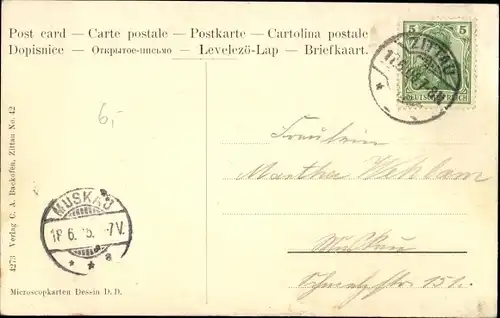 Post card — Carte postale — Postkarte — Cartolina postale
Dopisnice — Открытое-письмо — Levelező-Lap — Briefkaart.
5 5
DEUTSCHES REICH
ZITTAU
6,-
Fräulein
Martha
Muskau
15
MUSKAU
18.6. 7V.
* * a
4273 Verlag C. A. Backofen, Zittau No. 42
Microscopkarten Dessin D. D.